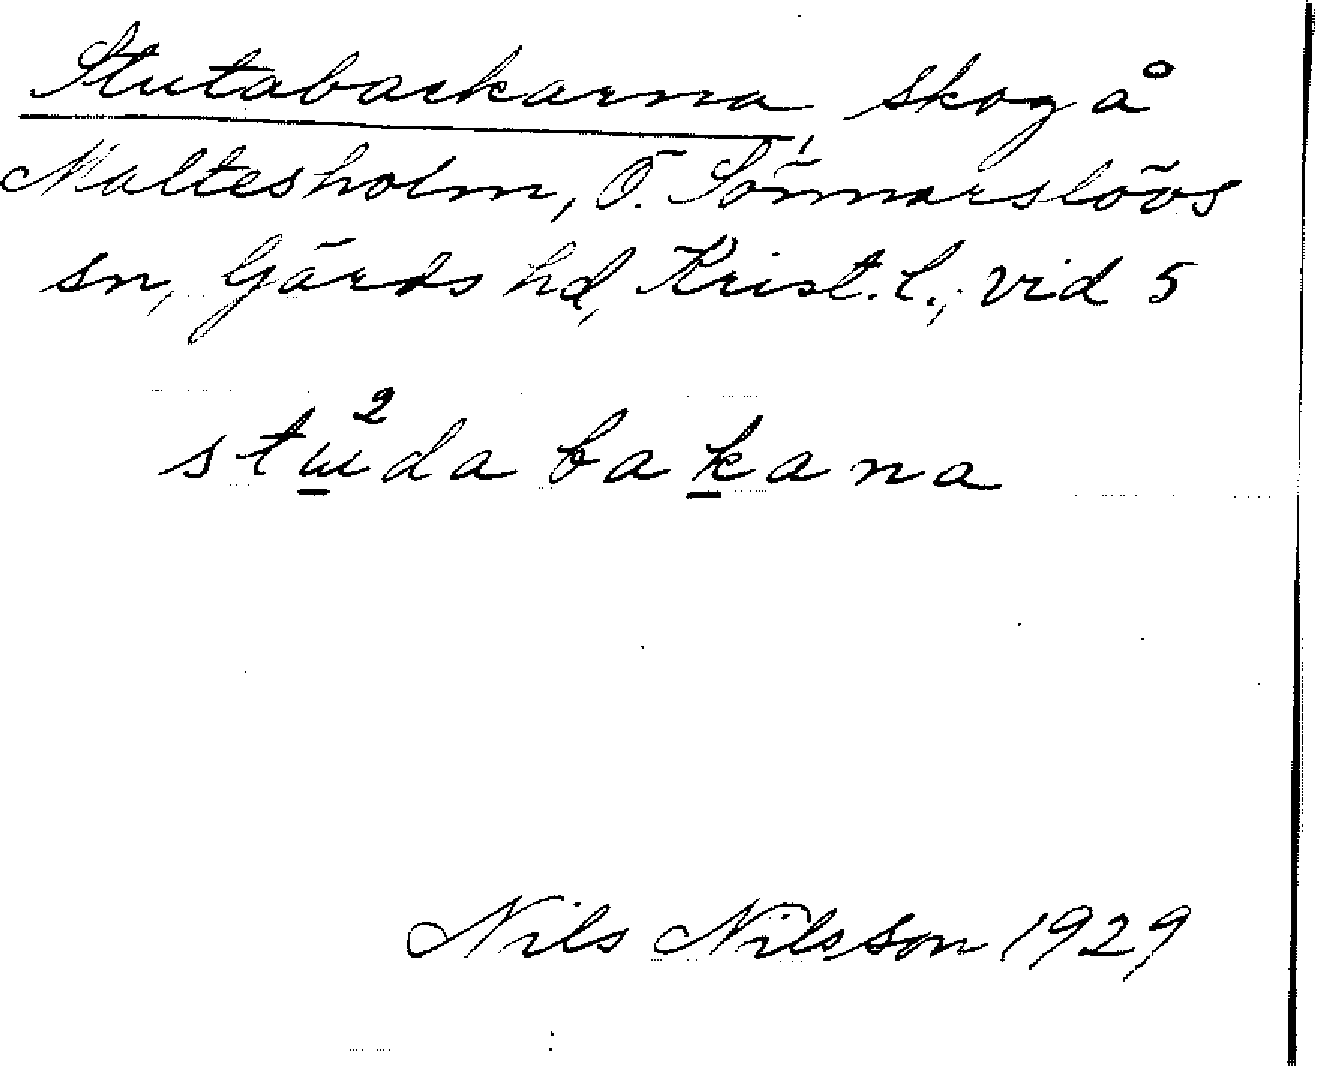 Stutabackarna, skog å
Maltesholm, Ö. Sönnarslövs
sn, Gärds hd, Krist. l., vid 5
stɯ̲²da bak̲ana
Nils Nilsson 1929